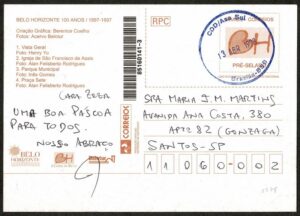 BELO HORIZONTE 100 ANOS / 1897-1997
Criação Gráfica: Berenice Coelho
Fotos: Acervo Belotur
1. Vista Geral
Foto: Henry Yu
2. Igreja de São Francisco de Assis
Foto: Alan Felisberto Rodrigues
3. Parque Municipal
Foto: Inês Gomes
4. Praça Sete
Foto: Alan Felisberto Rodrigues
CARA ZEZA
UMA BOA PÁSCOA
PARA TODOS.
NOSSO ABRAÇO
BELO
HORIZONTE
85160141-3
CORREIOS
RPC
CDD/Asa Sul
13 ABR
Brasília
PRÉ-SELADO
SRA MARIA J.M. MARTINS
AVENIDA ANA COSTA, 380
APTº 82 (GONZAGA)
SANTOS-SP
11060-002